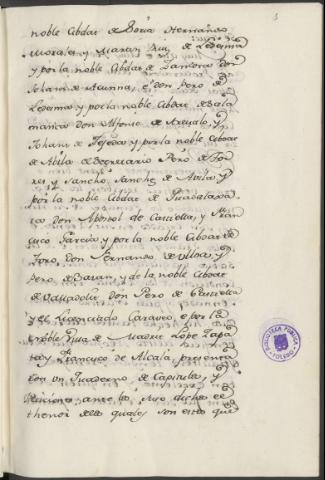 3
noble Cibdat de Soria Hernando
Morales y Juan Ruiz de Ledesma
y por la noble Cibdat de Zamora don
Johan de Acunna, é don Pero de
Ledesma y por la noble Cibdat de Sala
manca don Alfonso de Arevalo, y
Johan de Tejeda; y por la noble Cibdat
de Abila el Secretario Pero de Tor
res y Sancho Sanchez de Avila y
por la noble Cibdat de Guadalaxa
ra don Apostol de Castilla, y Fran
cisco Garcia y por la noble Cibdat de
Toro, Don Fernando de Ulloa y
Pero de Bazan, y de la noble Cibdat
de Valladolid don Pero de Castilla
y el Licenciado Caraveo, e por la
noble Villa de Madrit Lope Zapa
ta y Francisco de Alcala, presenta
ron un Quaderno de Capitulos, y
Peticiones, ante los suso dichos el
thenor de los quales son estos que
BIBLIOTECA PUBLICA
TOLEDO